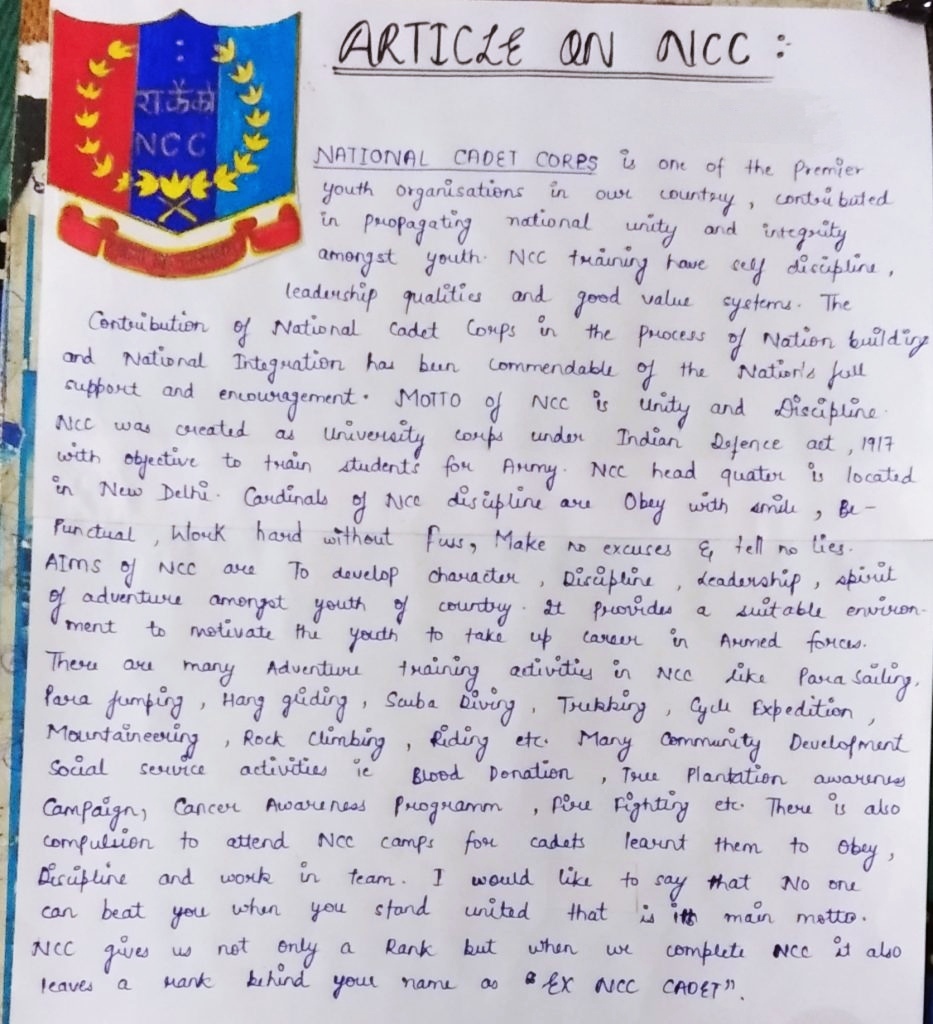 ARTICLE ON NCC :
राकैको
NCC
NATIONAL CADET CORPS is one of the Premier
youth organisations in our country, contributed
in propagating national unity and integrity
amongst youth. NCC training have self discipline,
leadership qualities and good value systems. The
Contribution of National Cadet Corps in the process of Nation building
and National Integration has been commendable of the Nation's full
support and encouragement. MOTTO of NCC is Unity and Discipline.
NCC was created as University corps under Indian Defence act, 1917
with objective to train students for Army. NCC head quater is located
in New Delhi. Cardinals of NCC discipline are Obey with smile, Be-
Punctual, Work hard without fuss, Make no excuses & tell no lies.
AIMS of NCC are To develop character, Discipline, Leadership, spirit
of adventure amongst youth of country. It Provides a suitable environ-
ment to motivate the youth to take up career in Armed forces.
There are many Adventure training activities in NCC like Para Sailing,
Para Jumping, Hang gliding, Scuba Diving, Trekking, Cycle Expedition,
Mountaineering, Rock Climbing, Riding etc. Many Community Development
Social service activities ie Blood Donation, Tree Plantation awareness
Campaign, Cancer Awareness Programm, Fire Fighting etc. There is also
compulsion to attend NCC camps for cadets learnt them to Obey,
Discipline and work in team. I would like to say that No one
can beat you when you stand united that is its main motto.
NCC gives us not only a Rank but when we complete NCC it also
leaves a rank behind your name as "EX NCC CADET".